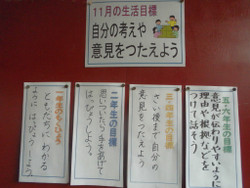 11月の生活目標
自分の考えや
意見をつたえよう
一年生のもくひょう
ともだちに、わかる
ように はっぴょうしよう。
二年生の目標
思いついたら手を挙げて
はっぴょうしよう。
三・四年生の目標
さい後まで自分の
意見をつたえよう
五・六年生の目標
意見が伝わりやすいように
理由や根拠などを
つけて話そう